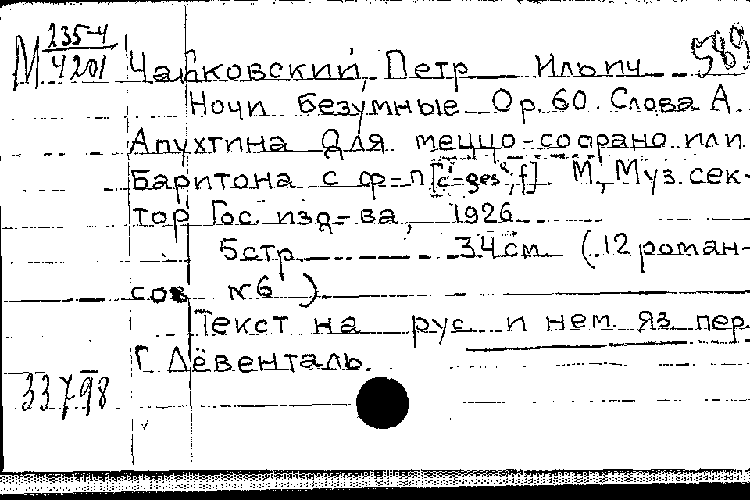 М 235-4
4201
589
Чайковский, Петр Ильич
Ночи безумные Op. 60. Слова А.
Апухтина Для меццо-сопрано или
баритона с ф-п [c'-ges'', f] М., Муз. сек-
тор Гос. изд-ва, 1926
5 стр 34 см (12 роман-
сов № 6)
Текст на рус и нем яз пер
Г Лёвенталь.
33798